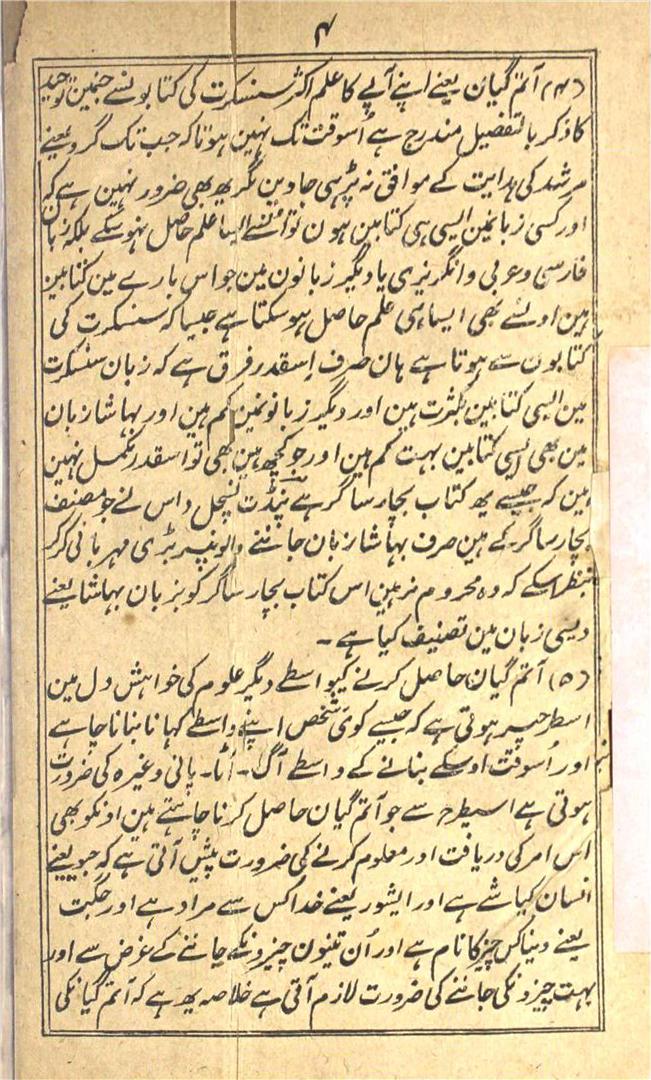 ۴
(۴) آتم گیان یعنے اپنے آپے کا علم اکثر سنسکرت کی کتابونسے جنمین توحید
کا ذکر بالتفصیل مندرج ہے اُسوقت تک نہین ہوتا کہ جب تک گرو یعنے
مرشد کی ہدایت کے موافق نہ پڑہی جاوین مگر یھ بھی ضرور نہین ہے کہ
اور کسی زبانمین ایسی ہی کتابین ہون تو اُنسے ایسا علم حاصل نہوسکے بلکہ زبان
فارسی و عربی و انگریزی یا دیگر زبانون مین جو اس بارے مین کتابین
ہین اونسے بھی ایسا ہی علم حاصل ہوسکتا ہے جیسا کہ سنسکرت کی
کتابون سے ہوتا ہے ہان صرف اِسقدر فرق ہے کہ زبان سنسکرت
مین ایسی کتابین بکثرت ہین اور دیگر زبانونمین کم ہین اور بہاشا زبان
مین بھی ایسی کتابین بہت کم ہین اور جو کچھ ہین بھی تو اسقدر مکمل نہین
ہین کہ جیسے یھ کتاب بچار ساگر ہے پنڈت نسچل داس نے جو مصنف
بچار ساگر کے ہین صرف بہاشا زبان جاننے والونپر بڑی مہربانی کر کر
بنظر اسکے کہ وہ محروم نرہین اس کتاب بچار ساگر کو بزبان بہاشا یعنے
دیسی زبان مین تصنیف کیا ہے ۔
(۵) آتم گیان حاصل کرنے کیواسطے دیگر علوم کی خواہش دل مین
اسطرحپر ہوتی ہے کہ جیسے کوئی شخص اپنے واسطے کہانا بنانا چاہے
اور اُسوقت اوسکے بنانے کے واسطے آگ ۔ آٹا ۔ پانی وغیرہ کی ضرورت
ہوتی ہے اسیطرح سے جو آتم گیان حاصل کرنا چاہتے ہین اونکو بھی
اس امر کی دریافت اور معلوم کرنے کی ضرورت پیش آتی ہے کہ جیو یعنے
انسان کیا شے ہے اور ایشور یعنے خدا کس سے مراد ہے اور جگت
یعنے دنیا کس چیز کا نام ہے اور اُن تینون چیزونکے جاننے کے غرض سے اور
بہت چیزونکی جاننے کی ضرورت لازم آتی ہے خلاصہ یھ ہے کہ آتم گیانکی